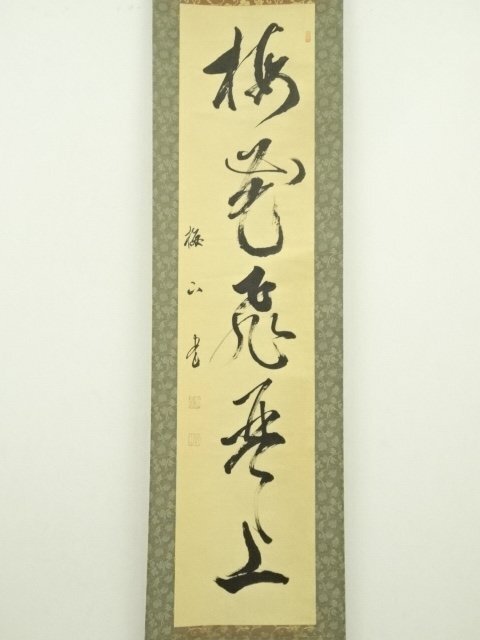 梅花飛琴上
梅山書